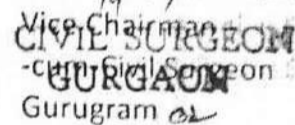 Vice Chairman
CIVIL SURGEON
-cum-Civil Surgeon
GURGAON
Gurugram